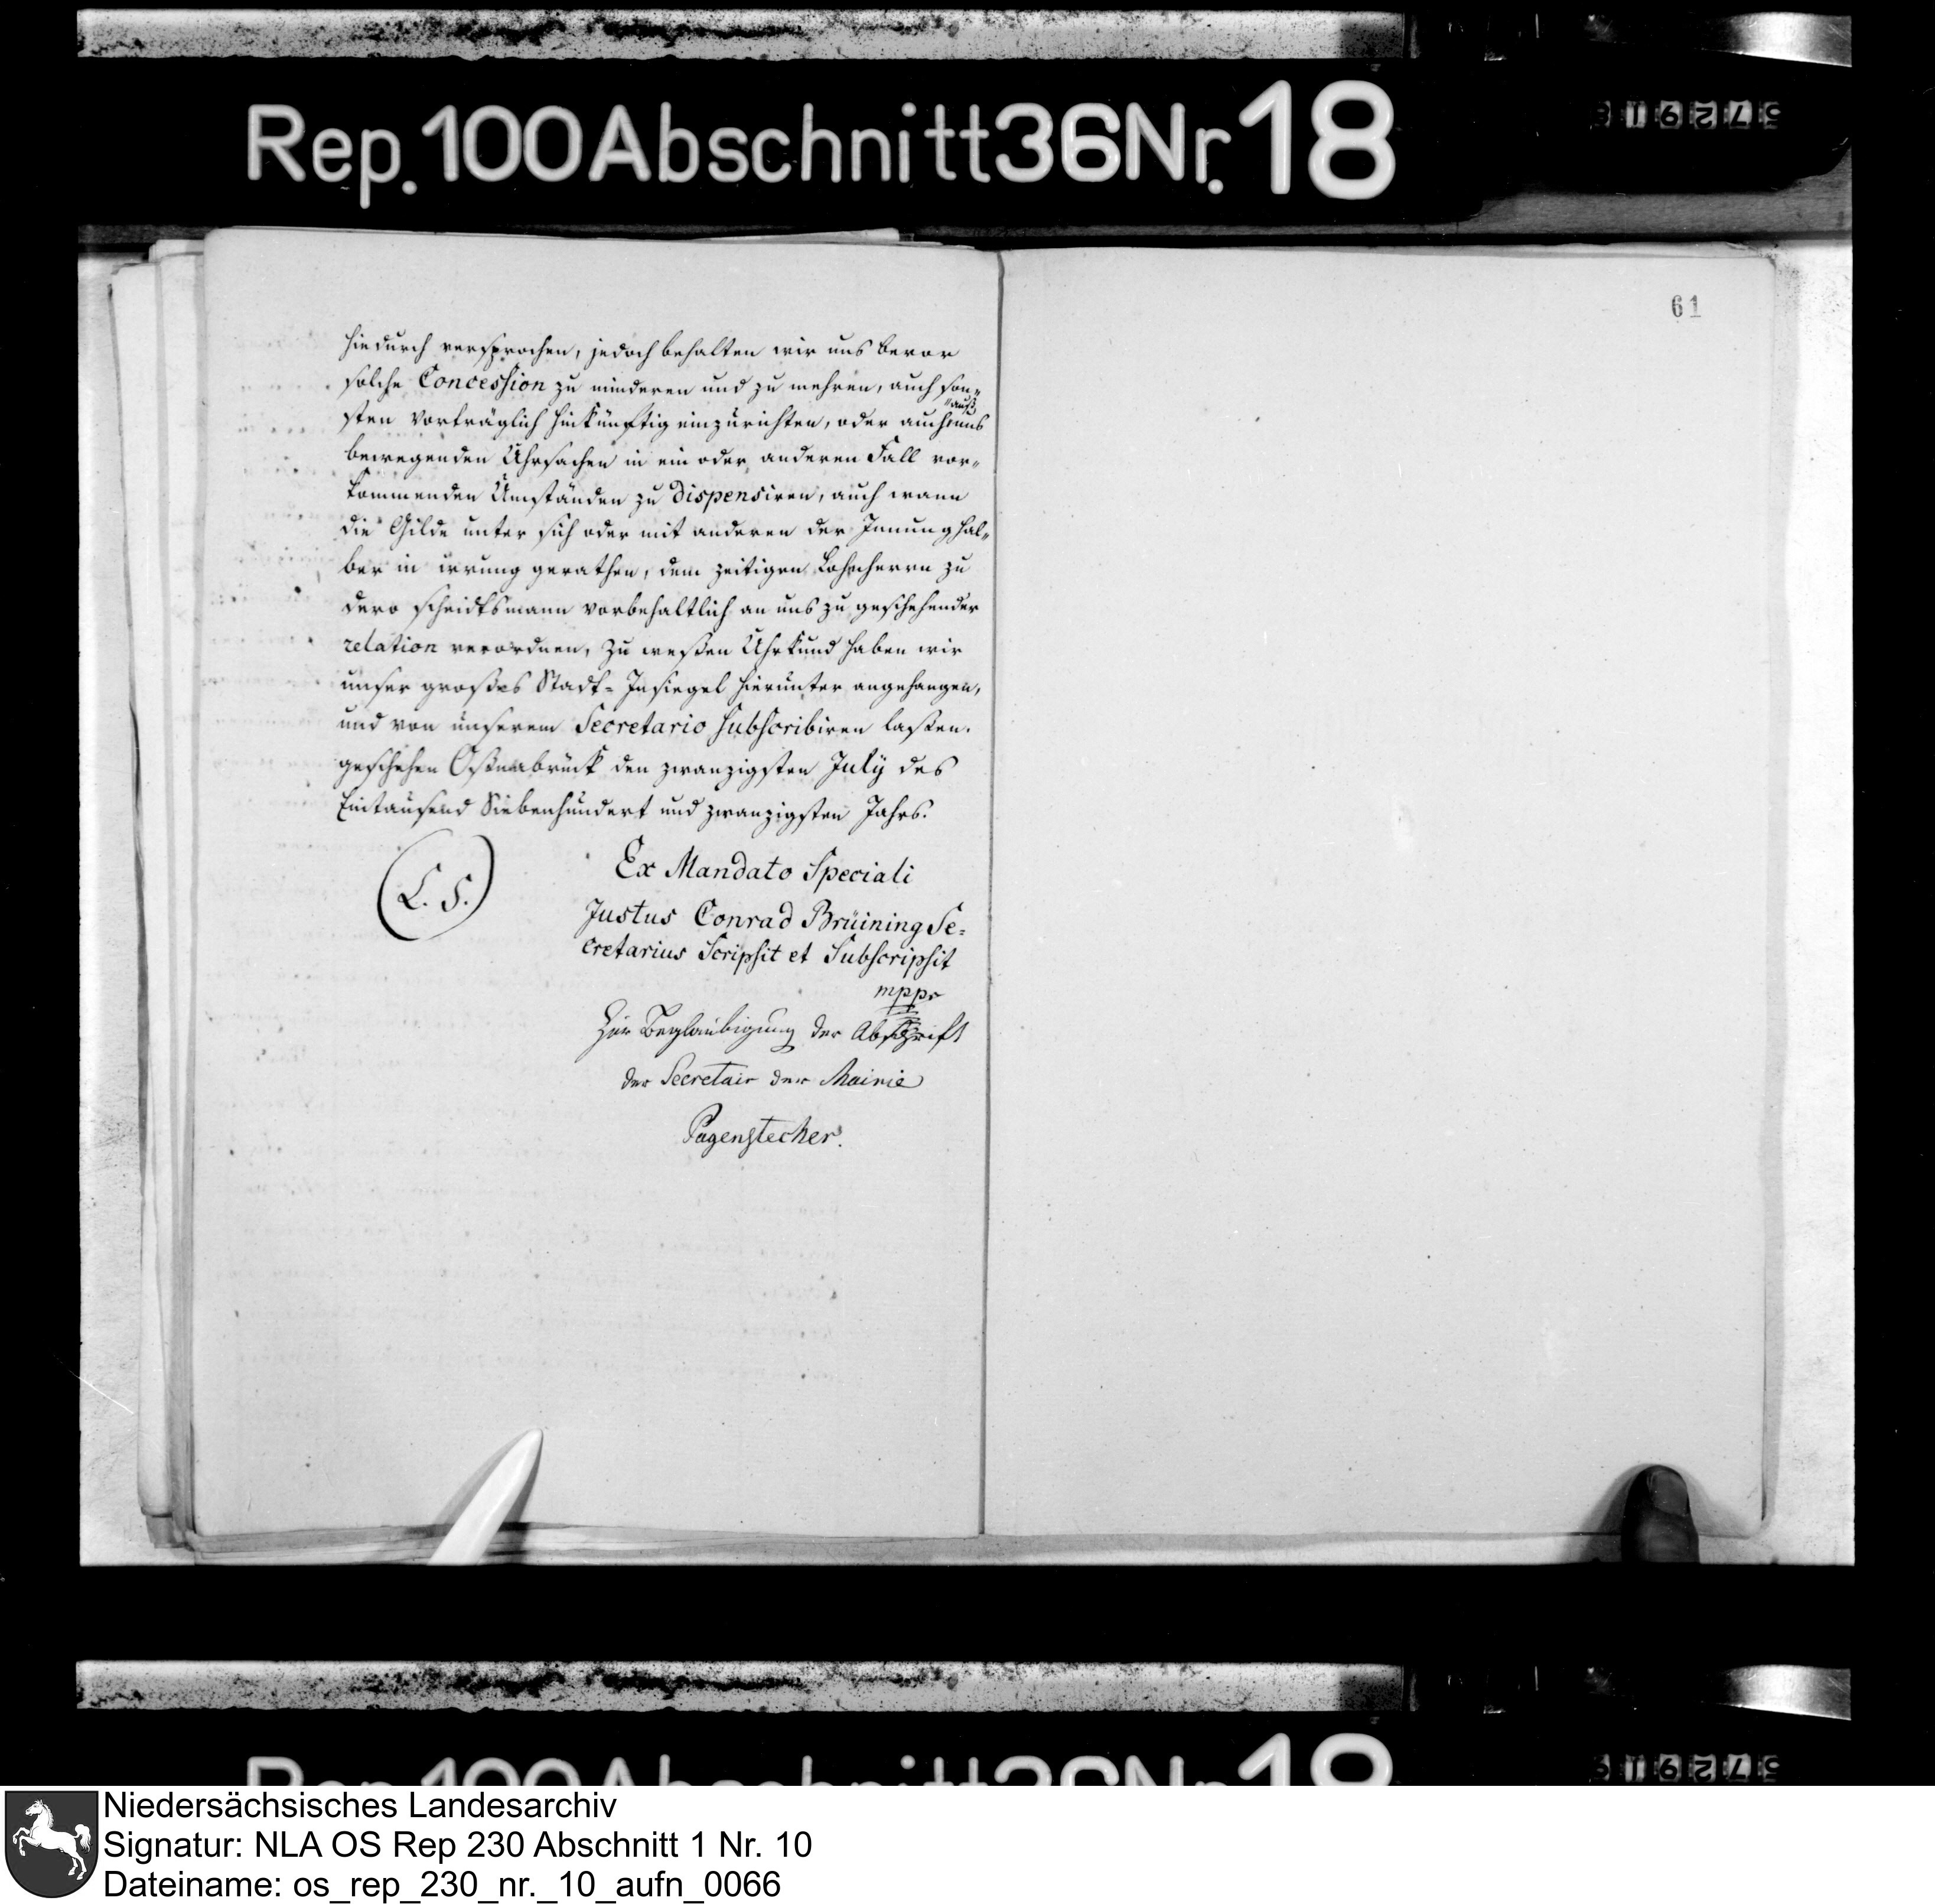 Rep. 100 Abschnitt 36 Nr. 18
61
hiedurch versprochen, jedoch behalten wir uns bevor
solche Concession zu minderen und zu mehren, auch son„
„auß
sten vorträglich hinkünftig einzurichten, oder auch uns
bewegenden Uhrsachen in ein oder anderen Fall vor„
kommenden Umständen zu dispensiren, auch wann
die Gilde unter sich oder mit anderen der Innung hal„
ber in irrung gerathen, dem zeitigen Lohnherrn zu
dero scheidtsmann vorbehaltlich an uns zu geschehender
relation verordnen, Zu weßen Uhrkund haben wir
unser großes Stadt-Insiegel hierunter angehangen,
und von unserem Secretario subscribiren laßen.
geschehen Oßnabrück den zwanzigsten July des
Eintausend Siebenhundert und zwanzigsten Jahrs.
(L. S.)
Ex Mandato Speciali
Justus Conrad Brüining Se=
cretarius Scripsit et Subscripsit
mppr
Zur Beglaubigung der Abschrift
der Secretair der Mairie
Pagenstecher.
Rep. 100 Abschnitt 36 Nr. 18
Niedersächsisches Landesarchiv
Signatur: NLA OS Rep 230 Abschnitt 1 Nr. 10
Dateiname: os_rep_230_nr._10_aufn_0066